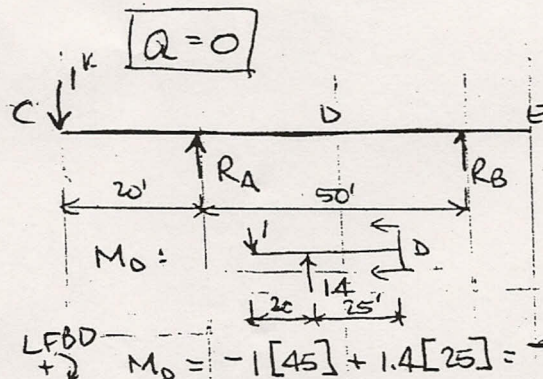 Q = 0
1ᴷ
C D E
R_A R_B
20' 50'
M_D :
1 D
1.4
20 25'
LFBD
+ M_D = -1[45] + 1.4[25] = -